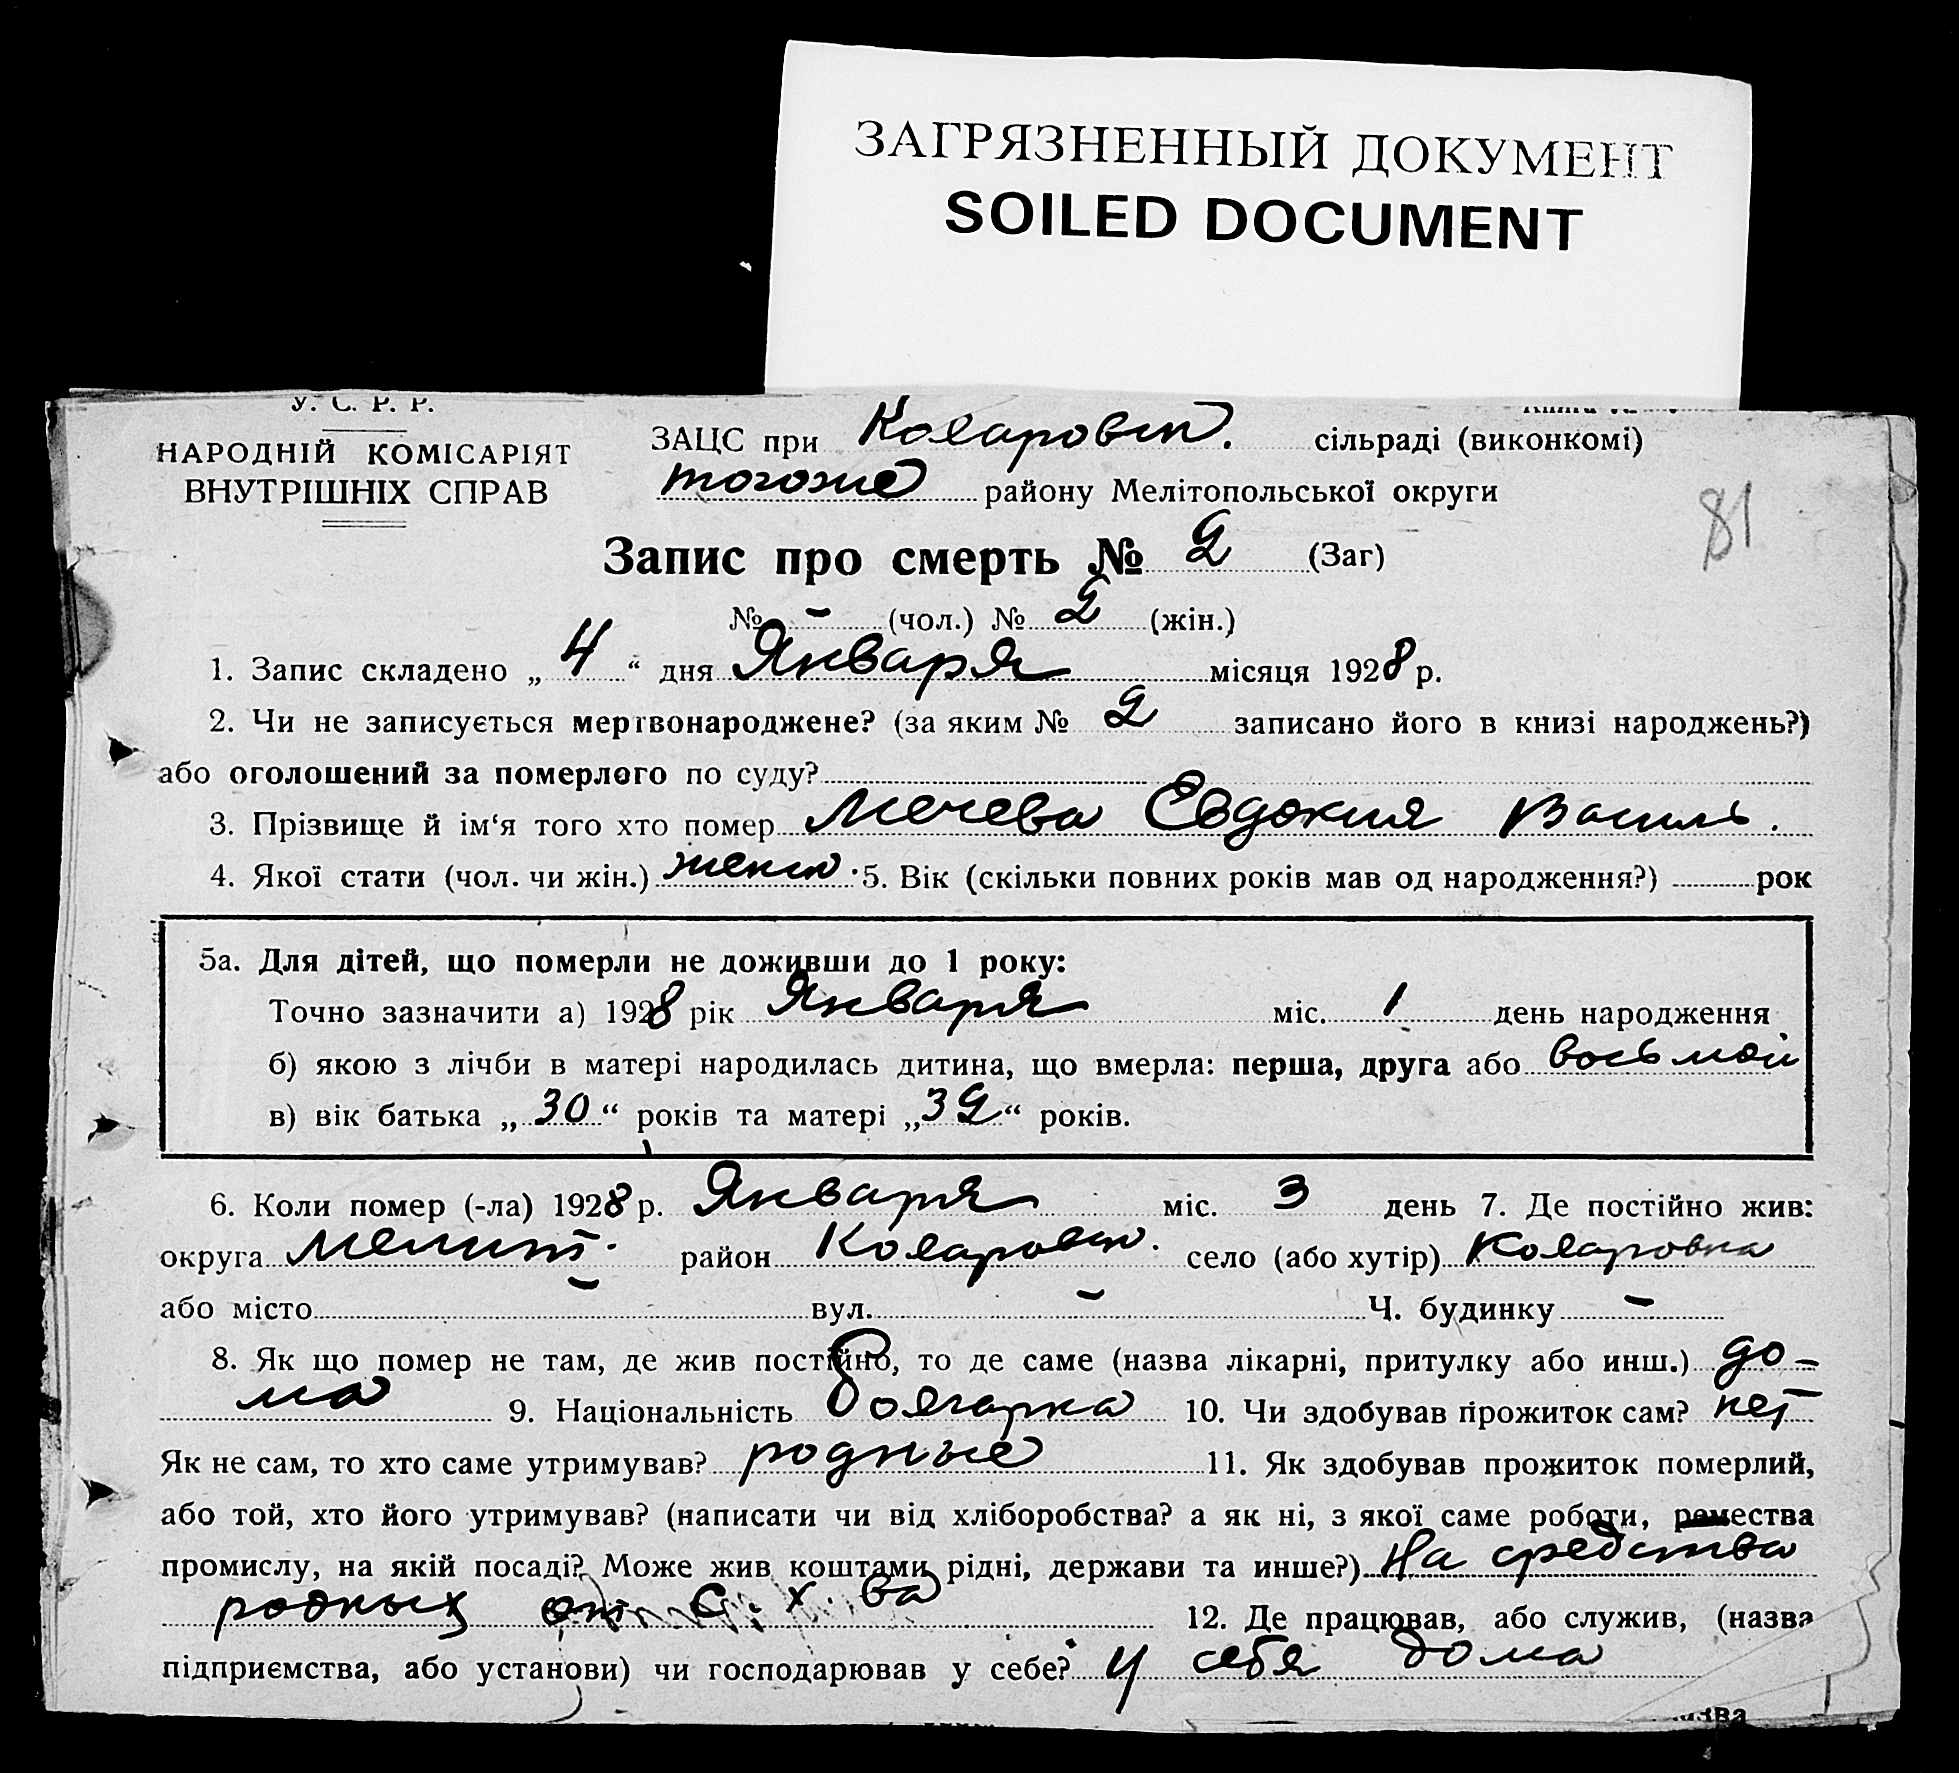 ЗАГРЯЗНЕННЫЙ ДОКУМЕНТ
SOILED DOCUMENT
У. С. Р. Р.
НАРОДНІЙ КОМІСАРІЯТ
ВНУТРІШНІХ СПРАВ
ЗАЦС при Коларовск. сільраді (виконкомі)
тогоже району Мелітопольської округи
81
Запис про смерть № 2 (Заг)
№ - (чол.) № 2 (жін.)
1. Запис складено „ 4 “ дня Января місяця 1928 р.
2. Чи не записується мертвонароджене? (за яким № 2 записано його в книзі народжень?)
або оголошений за померлого по суду?
3. Прізвище й ім‘я того хто помер Мечева Евдокия Василь.
4. Якої стати (чол. чи жін.) женск. 5. Вік (скільки повних років мав од народження?) рок
5а. Для дітей, що померли не доживши до 1 року:
Точно зазначити а) 1928 рік Января міс. 1 день народження
б) якою з лічби в матері народилась дитина, що вмерла: перша, друга або восьмой
в) вік батька „ 30 “ років та матері „ 32 “ років.
6. Коли помер (-ла) 1928 р. Января міс. 3 день 7. Де постійно жив:
округа Мелит. район Коларовск. село (або хутір) Коларовка
або місто - вул. - Ч. будинку -
8. Як що помер не там, де жив постійно, то де саме (назва лікарні, притулку або инш.) до-
ма 9. Національність болгарка 10. Чи здобував прожиток сам? нет
Як не сам, то хто саме утримував? родные 11. Як здобував прожиток померлий,
або той, хто його утримував? (написати чи від хліборобства? а як ні, з якої саме роботи, ремества
промислу, на якій посаді? Може жив коштами рідні, держави та инше?) На средства
родных от с. х. ва 12. Де працював, або служив, (назва
підприємства, або установи) чи господарював у себе? у себя дома